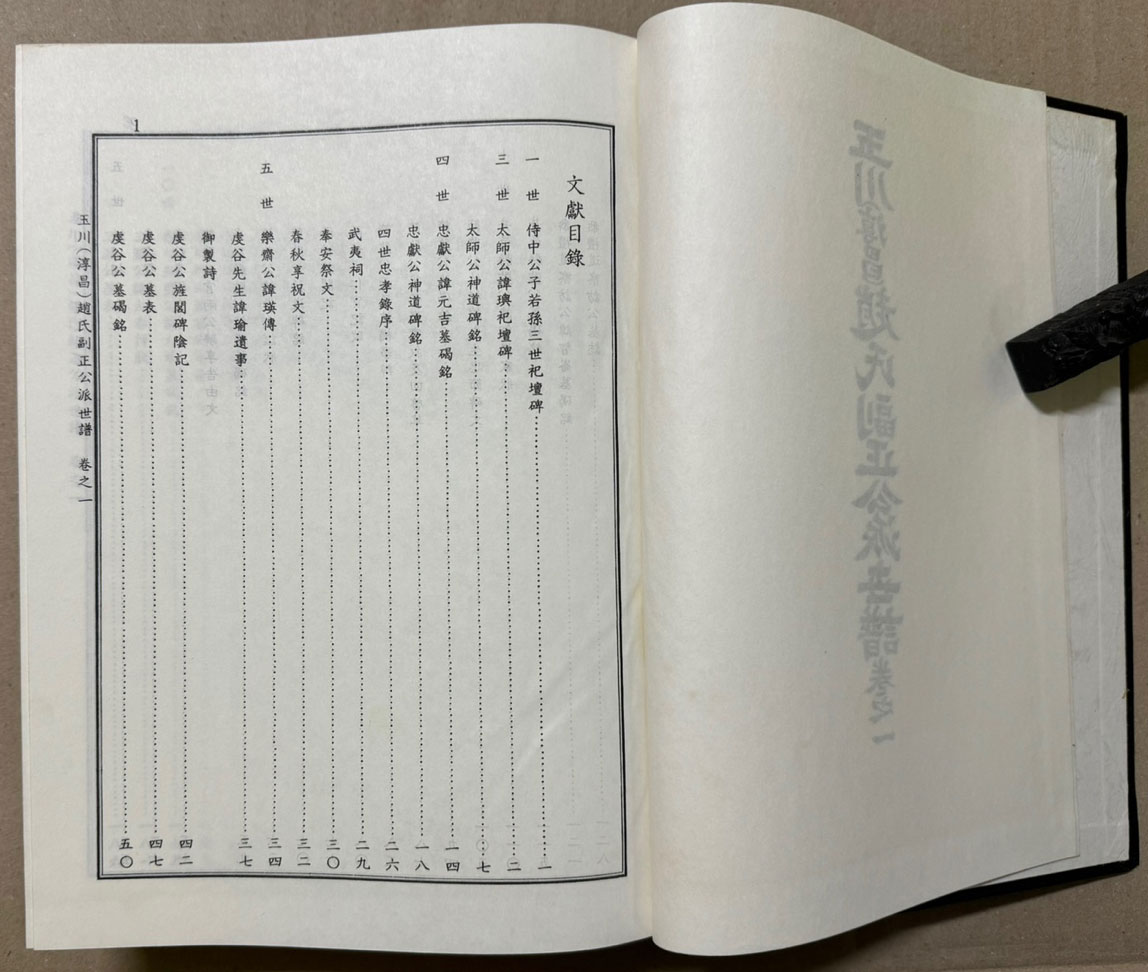 文獻目錄
一世 侍中公子若孫三世祀壇碑 一
三世 太師公諱璵祀壇碑 二
太師公神道碑銘 七
四世 忠獻公諱元吉墓碣銘 一四
忠獻公神道碑銘 一八
四世忠孝錄序 二六
武夷祠 二九
奉安祭文 三〇
春秋享祝文 三二
五世 樂齋公諱瑛傳 三四
虔谷先生諱瑜遺事 三七
御製詩
虔谷公旌閣碑陰記 四二
虔谷公墓表 四七
虔谷公墓碣銘 五〇
玉川(淳昌)趙氏副正公派世譜 卷之一
1
玉川淳昌趙氏副正公派世譜卷之一